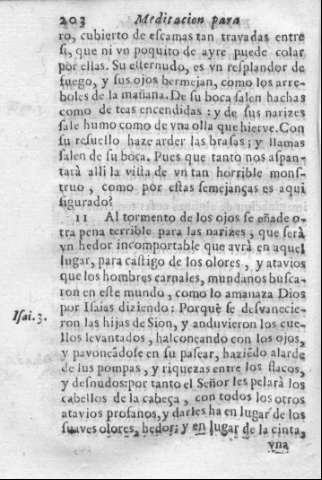 203 Meditacion para
ro, cubierto de escamas tan travadas entre
si, que ni vn poquito de ayre puede colar
por ellas. Su esternudo, es vn resplandor de
fuego, y sus ojos bermejan, como los arre-
boles de la mañana. De su boca salen hachas
como de teas encendidas : y de sus narizes
sale humo como de vna olla que hierve. Con
su resuello haze arder las brasas; y llamas
salen de su boca. Pues que tanto nos aspan-
tarà alli la vista de vn tan horrible mons-
truo , como por estas semejanças es aqui
figurado?
11 Al tormento de los ojos se eñade o-
tra pena terrible para las narizes , que serà
vn hedor incomportable que avrà en aquel
lugar, para castigo de los olores, y atavios
que los hombres carnales, mundanos busca-
ron en este mundo , como lo amanaza Dios
por Isaias diziendo: Porquè se desvanecie-
Isai. 3. ron las hijas de Sion, y anduvieron los cue-
llos levantados , halconçando con los ojos,
y pavoneãdose en su pasear, haziẽdo alarde
de sus pompas , y riquezas entre los flacos,
y desnudos: por tanto el Señor les pelarà los
cabellos de la cabeça , con todos los otros
atavios profanos, y darles ha en lugar de los
suaves olores, hedor; y en lugar de la cinta,
vna